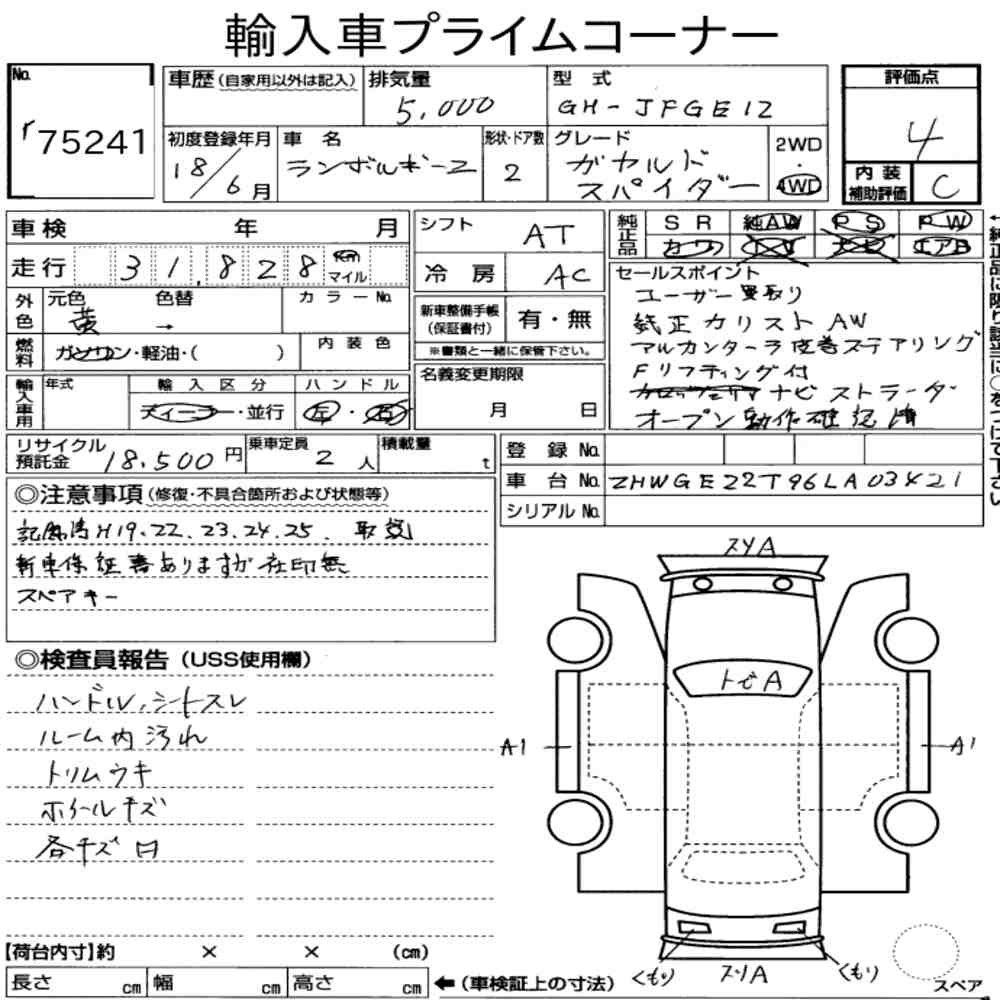 輸入車プライムコーナー
No.
r75241
車歴(自家用以外は記入)
排気量
5,000
型 式
GH-JFGE12
評価点
4
内装補助評価
C
初度登録年月
18/6月
車 名
ランボルギーニ
形状・ドア数
2
グレード
ガヤルド
スパイダー
2WD
・
4WD
車検 年 月
走行 31,828 km マイル
シフト
AT
冷房
AC
純正品
SR 純AW PS PW
カワ TV ナビ エアB
外色
元色
黄
色替
→
カラーNo.
燃料
ガソリン・軽油・( )
内装色
新車整備手帳
(保証書付)
有・無
※書類と一緒に保管下さい。
セールスポイント
ユーザー買取り
純正カリストAW
アルカンターラ皮巻ステアリング
Fリフティング付
ナビ ストラーダ
オープン動作確認済
輸入車用
年式
輸入区分
ディーラー・並行
ハンドル
左・右
名義変更期限
月 日
リサイクル
預託金
18,500円
乗車定員
2人
積載量
t
登録No.
車台No.
ZHWGE22T96LA03421
シリアルNo.
←純正品に限り該当に○をつけて下さい
◎注意事項(修復・不具合箇所および状態等)
記録簿H19.22.23.24.25. 取説
新車保証書ありますが在印無
スペアキー
◎検査員報告(USS使用欄)
ハンドル、シートスレ
ルーム内汚れ
トリムウキ
ホイールキズ
各キズ凹
スリA
トビA
A1
A1
くもり
スリA
くもり
スペア
【荷台内寸】約 × × (cm)
長さ cm 幅 cm 高さ cm ←(車検証上の寸法)